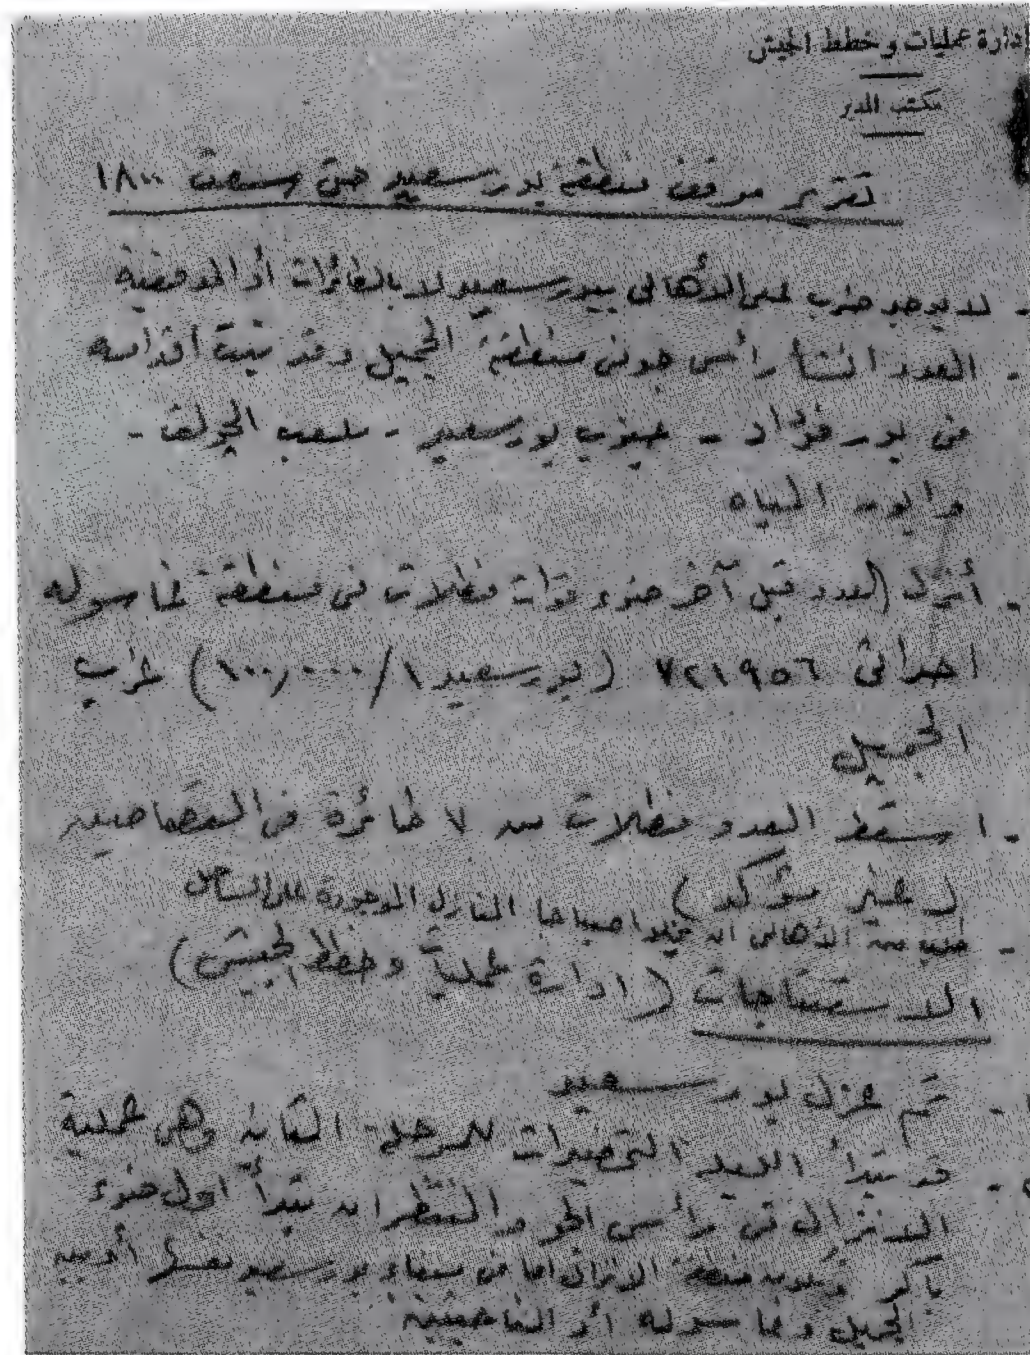 إدارة عمليات وخطط الجيش
مكتب المدير
تقرير موقف منطقة بورسعيد حتى سعت ١٨٠٠
- لا يوجد ضرب على الأهالى ببورسعيد لا بالطائرات أو المدفعية
- العدو انشأ رأس جوى منطقة الجميل وقد ثبت أقدامه
فى بور فؤاد - جنوب بورسعيد - ملعب الجولف -
وابور المياه
- أنزل العدو قبل آخر ضوء قوات مظلات فى منطقة غاسوله
احداثى ٧٢١٩٥٦ (بورسعيد ١/١٠٠,٠٠٠) غرب
الجميل
- اسقط العدو مظلات من ٧ طائرة فى القصاصين
(غير مؤكد)
- طلب من الأهالى ان صباحا المنازل الموجودة على الساحل
الاستنتاجات (ادارة عمليات وخطط الجيش)
- تم عزل بورسعيد
- قد تبدأ التحضيرات للمرحلة الثانية وهى عملية
الانزال فى رأس الجو والمنتظر ان تبدأ أول ضوء
باكر وتكون منطقة الانزال اما فى ميناء بورسعيد نفسها أو بين
الجميل وغاسوله أو